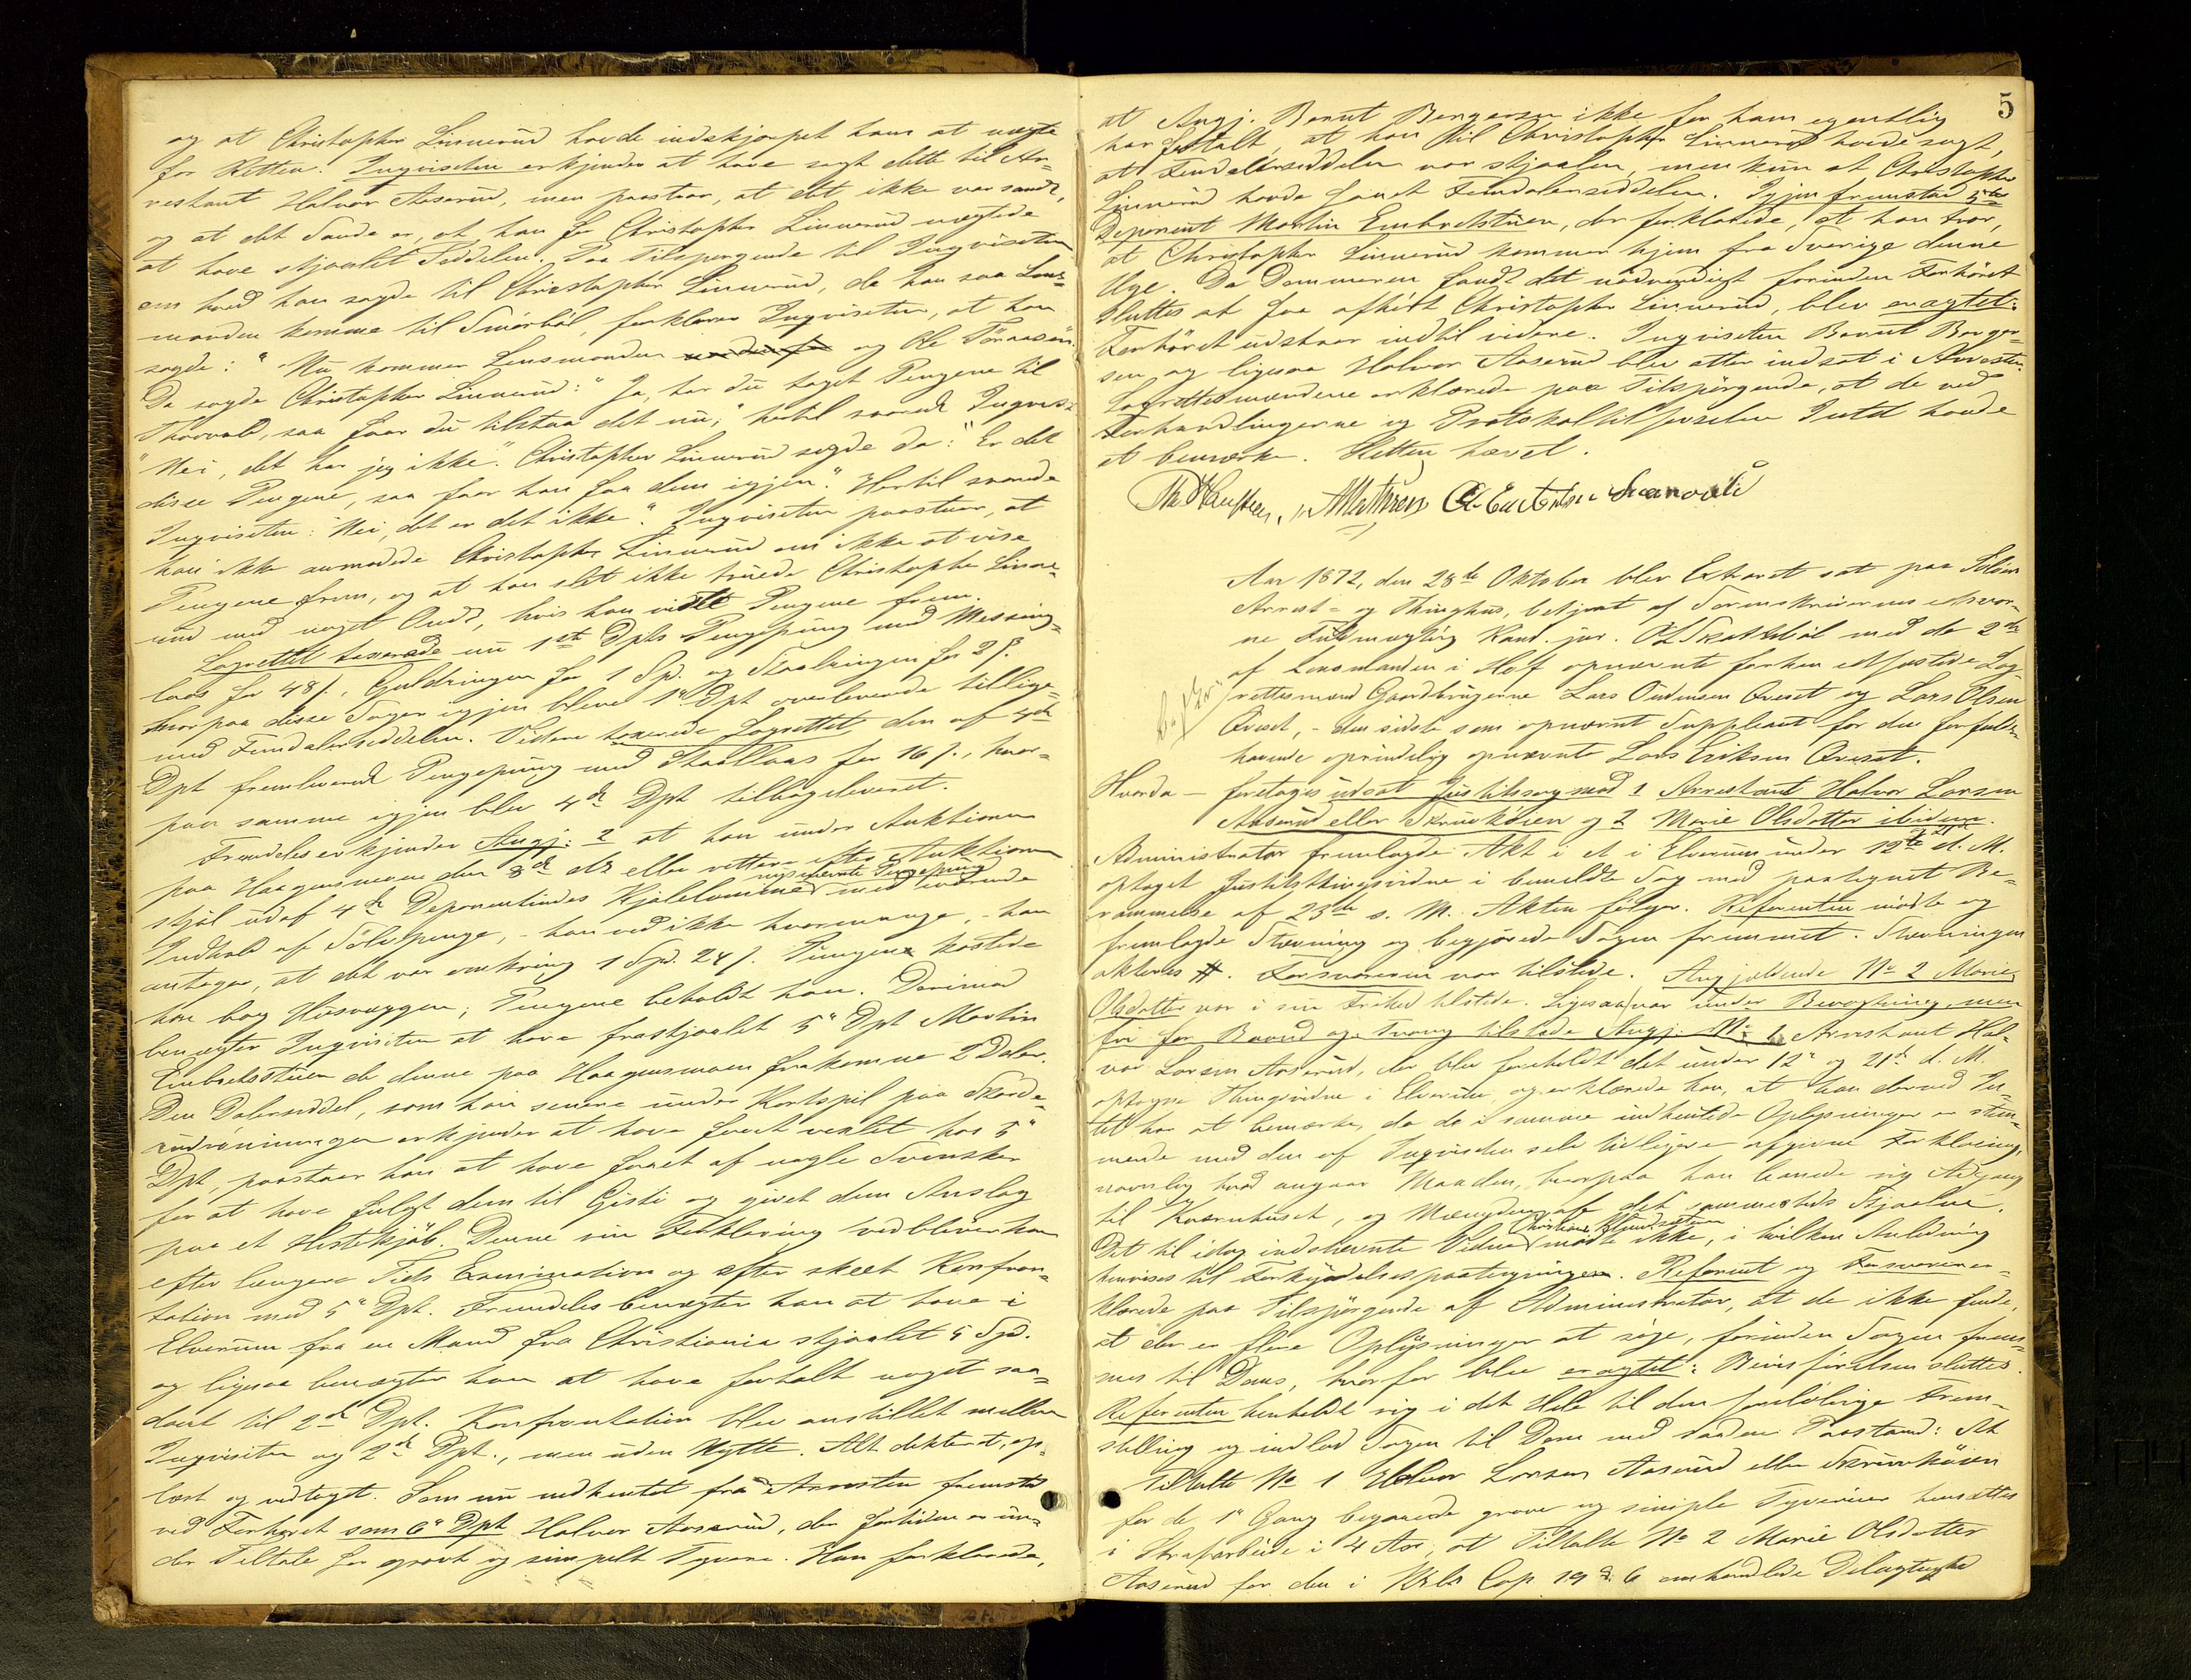 og at Christopher Linnerud havde indskjærpet ham at nægte
for Retten. Inqvisiten erkjender at have sagt dette til Ar-
restant Halvor Aaserud, men paastaar, at det ikke var sandt,
og at det Sande er, at han for Christopher Linnerud nægtede
at have stjaalet Seddelen. Paa Tilspørgende til Inqvisiten
om hvad han sagde til Christopher Linnerud, da han saa Lens-
manden komme til Smørhøl, forklarer Inqvisiten, at han
sagde: "Nu kommer Lensmanden og Ole
Da sagde Christopher Linnerud: "Ja, har du taget Pengene til
Thorvald, saa faar du tilstaa det nu," hertil svarede Inqvis:
"Nei, det har jeg ikke." Christopher Linnerud sagde da: "Er det
disse Pengene, saa faar han faa dem igjen." Hertil svarede
Inqvisiten: "Nei, det er det ikke." Inqvisiten paastaar, at
han ikke anmodede Christopher Linnerud om ikke at vise
Pengene frem, og at han slet ikke truede Christopher Linne-
rud med noget Ondt, hvis han viste Pengene frem.
Lagrettet taxerede nu 1ste Dpts Pengepung med Messing-
laas for 48 s., Guldringen for 1 Spd. og Staalringen for 2 s.
hvorpaa disse Sager igjen bleve 1ste Dpt overleverede tillige-
med Femdalerseddelen. Videre taxerede Lagrettet den af 4de
Dpt fremleverede Pengepung med Staallaas for 16 s., hvor-
paa samme igjen blev 4de Dpt tilbageleveret.
Fremdeles erkjender Angj: 2 at han under Auktionen
paa Haagensmoen den 8de ds eller rettere efter Auktionen
stjal ud af 4de Deponentindes Kjolelomme nysnævnte Pengepung med værende
Indhold af Sølvpenge, - han ved ikke hvormange, - han
antager, at det var omkring 1 Spd. 24 s. Pungen kastede
han bag Husvæggen; Pengene beholdt han. Derimod
benægter Inqvisiten at have frastjaalet 5te Dpt Martin
Embretstuen de denne paa Haagensmoen frakomne 2 Daler.
Den Dalerseddel, som han senere under Kortspil paa Skorde-
rudsæningen erkjender at have faaet vexlet hos 5te
Dpt, paastaar han at have faaet af nogle Svensker
for at have fulgt dem til Gjesti og givet dem Anslag
paa et Hestekjøb. Denne sin Forklaring vedbliver han
efter længere Tids Examination og efter skeet Konfron-
tation med 5te Dpt. Fremdeles benægter han at have i
Elverum fra en Mand fra Christiania stjaalet 5 Spd.
og ligesaa benægter han at have fortalt noget saa-
dant til 2de Dpt. Konfrontation blev anstillet mellem
Inqvisiten og 2de Dpt., men uden Nytte. Alt dikteret, op-
læst og vedtaget. Som nu nedhentet fra Arresten fremstod
ved Forhøret som 6te Dpt Halvor Aaserud, der fortiden er un-
der Tiltale for grovt og simpelt Tyveri. Han forklarede,
5
at Angj. Bernt Bergersen ikke for ham egentlig
har fortalt, at han til Christopher Linnerud havde sagt,
at Femdalerseddelen var stjaalen, men kun at Christopher
Linnerud havde faaet Femdalerseddelen. Igjen fremstod 5te
Deponent Martin Embretstuen, der forklarede, at han tror,
at Christopher Linnerud kommer hjem fra Sverige denne
Uge. Da Dommeren fandt det nødvendigt forinden Forhøret
sluttes at faa afhørt Christopher Linnerud, blev eragtet:
Forhøret udstaar indtil videre. Inqvisiten Bernt Berger-
sen og ligesaa Halvor Aaserud blev atter indsat i Arresten.
Lagrettesmændene erklærede paa Tilspørgende, at de ved
Forhandlingerne og Protokoltilførselen Intet havde
at bemærke. Retten hævet.
Aar 1872, den 28de Oktober blev Extraret sat paa
Arrest- og Thinghus, betjent af Sorenskriverens edsvor-
ne Fuldmægtig Kand. jur. med de 2de
af Lensmanden i Hof opnævnte forhen edfæstede Lag-
rettesmænd Gaardbrugerne Lars Andersen Qveset og Lars Olsen
Qveset, - den sidste som opnævnt Suppleant for den forfald-
havende oprindelig opnævnte Lars Eriksen Qveset.
Hvorda - foretoges udsat Justitssag mod 1 Arrestant Halvor Larsen
Aaserud eller Skruvhøien og 2 Marie Olsdatter ibidem.
Administrator fremlagde Akt i et i Elverum under 12te & 21de d. M.
optaget Justitsthingsvidne i bemeldte Sag med paategnet Be-
rammelse af 23de s. M. Akten følger. Referenten mødte og
fremlagde Stævning og begjærede Sagen fremmet. Stævningen
akteres #. Forsvareren var tilstede. Angjældende No 2 Marie
Olsdatter var i sin Frihed tilstede. Ligesaa var under Bevogtning, men
fri for Baand og Tvang tilstede Angj. No 1 Arrestant Hal-
vor Larsen Aaserud, der blev foreholdt det under 12te og 21de d. M.
optagne Thingsvidne i Elverum, og erklærede han, at han derved In-
tet har at bemærke, da de i samme indhentede Oplysninger er stem-
mende med den af Inqvisiten selv tidligere afgivne Forklaring,
navnlig hvad angaar Maaden, hvorpaa han banede sig Adgang
til Kværnhuset, og Mængden af det sammesteds Stjaalne.
Det til idag indstævnte Vidne mødte ikke, i hvilken Anledning
henvises til Forkyndelsespaategningen. Referent og Forsvarer er-
klærede paa Tilspørgende af Administrator, at de ikke finde,
at der er flere Oplysninger at søge, forinden Sagen frem-
mes til Doms, hvorfor blev eragtet: Bevisførelsen sluttes.
Referenten henholdt sig i det Hele til den foreløbige Frem-
stilling og indlod Sagen til Doms med saadan Paastand: At
Tiltalte No 1 Halvor Larsen Aaserud eller Skruvhøien
for de 1ste Gang begaaede grove og simple Tyverier hensættes
i Strafarbeide i 4 Aar, at Tiltalte No 2 Marie Olsdatter
Aaserud for den i Krls Cap 19 § 6 omhandlede Delagtighed